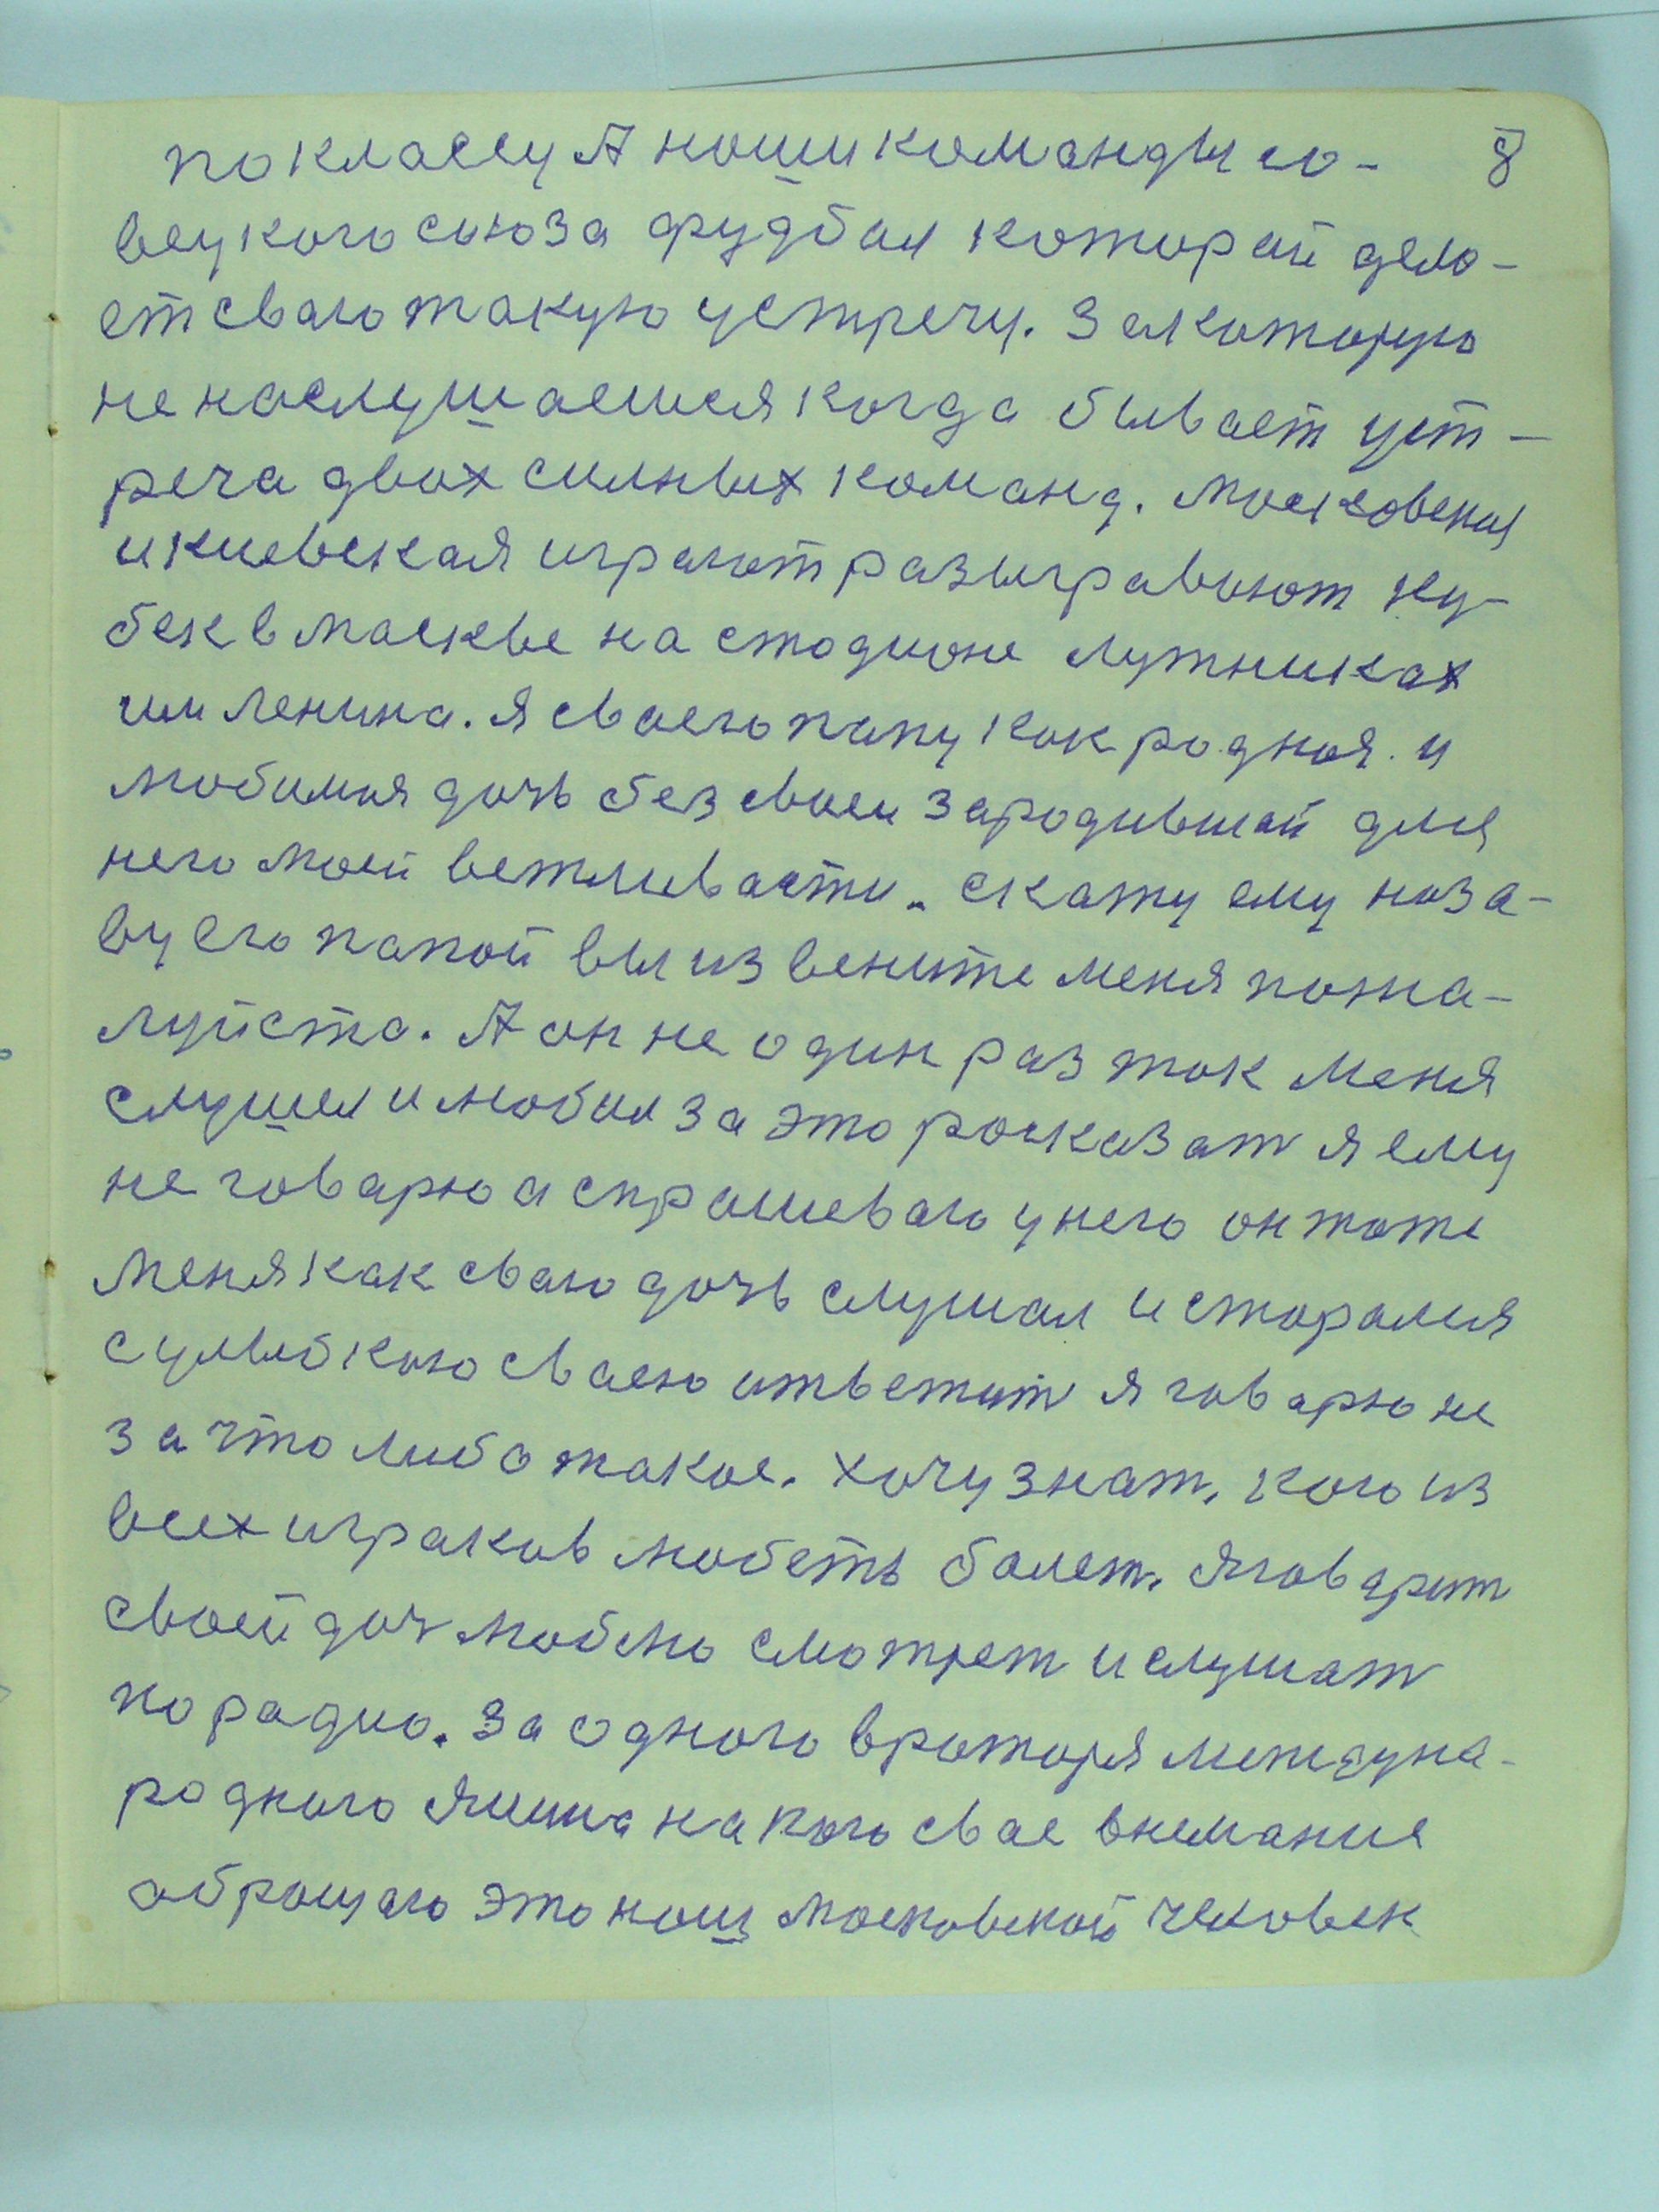 по классу А наши команды со- 8
вецкого союза фудбал которай дела-
ет сваю такую устречу. За которую
не наслушаешся когда бывает уст-
реча двох силных команд. Московская
и киевская играют разыгравают ку-
бек в маскве на стодионе лужниках
им Ленина. Я сваего папу как родная и
любимая дочь без своеи зародившей для
него моей вежливасти. скажу ему наза-
ву его папой вы извените меня пожа-
луйста. А он не один раз так меня
слушел и любил за это расказат я ему
не говарю а спрашеваю у него он тоже
меня как сваю дочь слушал и старался
с улыбкою сваею ответит я говарю не
за что либо такое. хочу знат, кого из
всех играков любеть болет. Я говарит
своей доч люблю смотрет и слушат
по радио. За одного вроторя междуна-
родного Яшина на кого свае внемания
оброщаю это наш московской человек